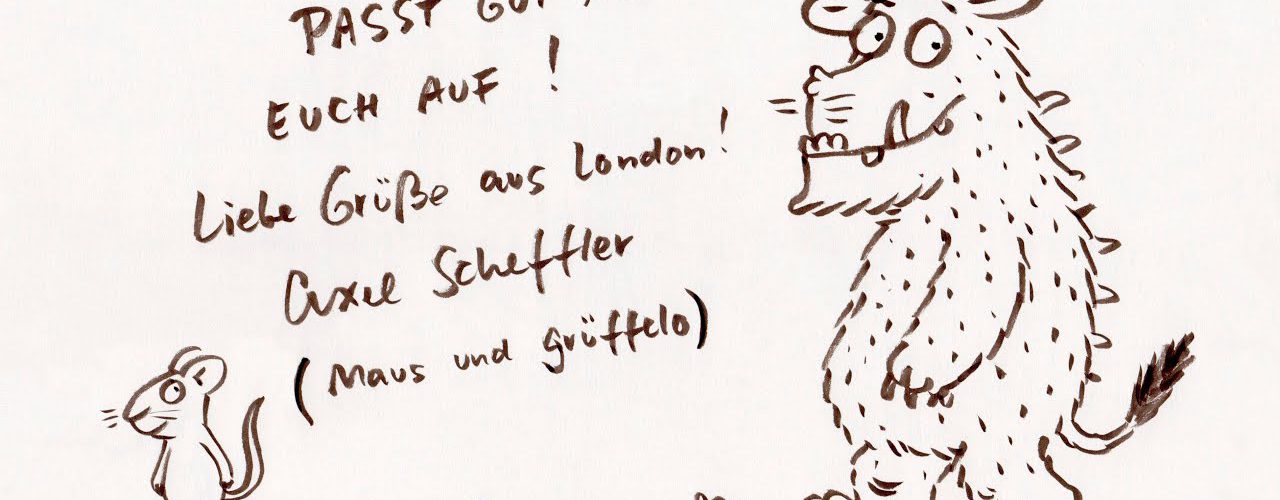 PASST GUT
EUCH AUF!
Liebe Grüße aus London!
Axel Scheffler
(Maus und Grüffelo)